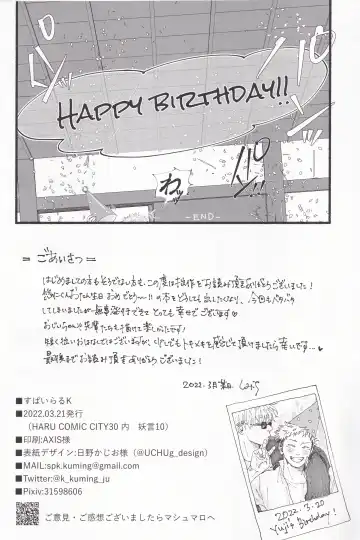 HAPPY BIRTHDAY!!
パン
パン
パン
わっ
- END -
= ごあいさつ =
はじめましての方もそうでない方も、この度は拙作をお読み頂きありがとうございました!
悠仁くんお誕生日おめでとう〜!!の本をどうしても出したくなり、今回もバタバタ
してしまいましたが…無事発行できてとっても幸せでございます♥
おじいちゃんや先輩たちも描けて楽しかったです!
少しでもトキメキを感じて頂けましたら幸いです…♥
最後までお読み頂きありがとうございました!
2022. 3月某日
■すぱいらるK
■2022.03.21発行
(HARU COMIC CITY30 内 妖言10)
■印刷:AXIS様
■表紙デザイン:日野かじお様(@UCHUg_design)
■MAIL:spk.kuming@gmail.com
■Twitter:@k_kuming_ju
■Pixiv:31598606
ご意見・ご感想ございましたらマシュマロへ
2022. 3. 20
Yuji's Birthday!